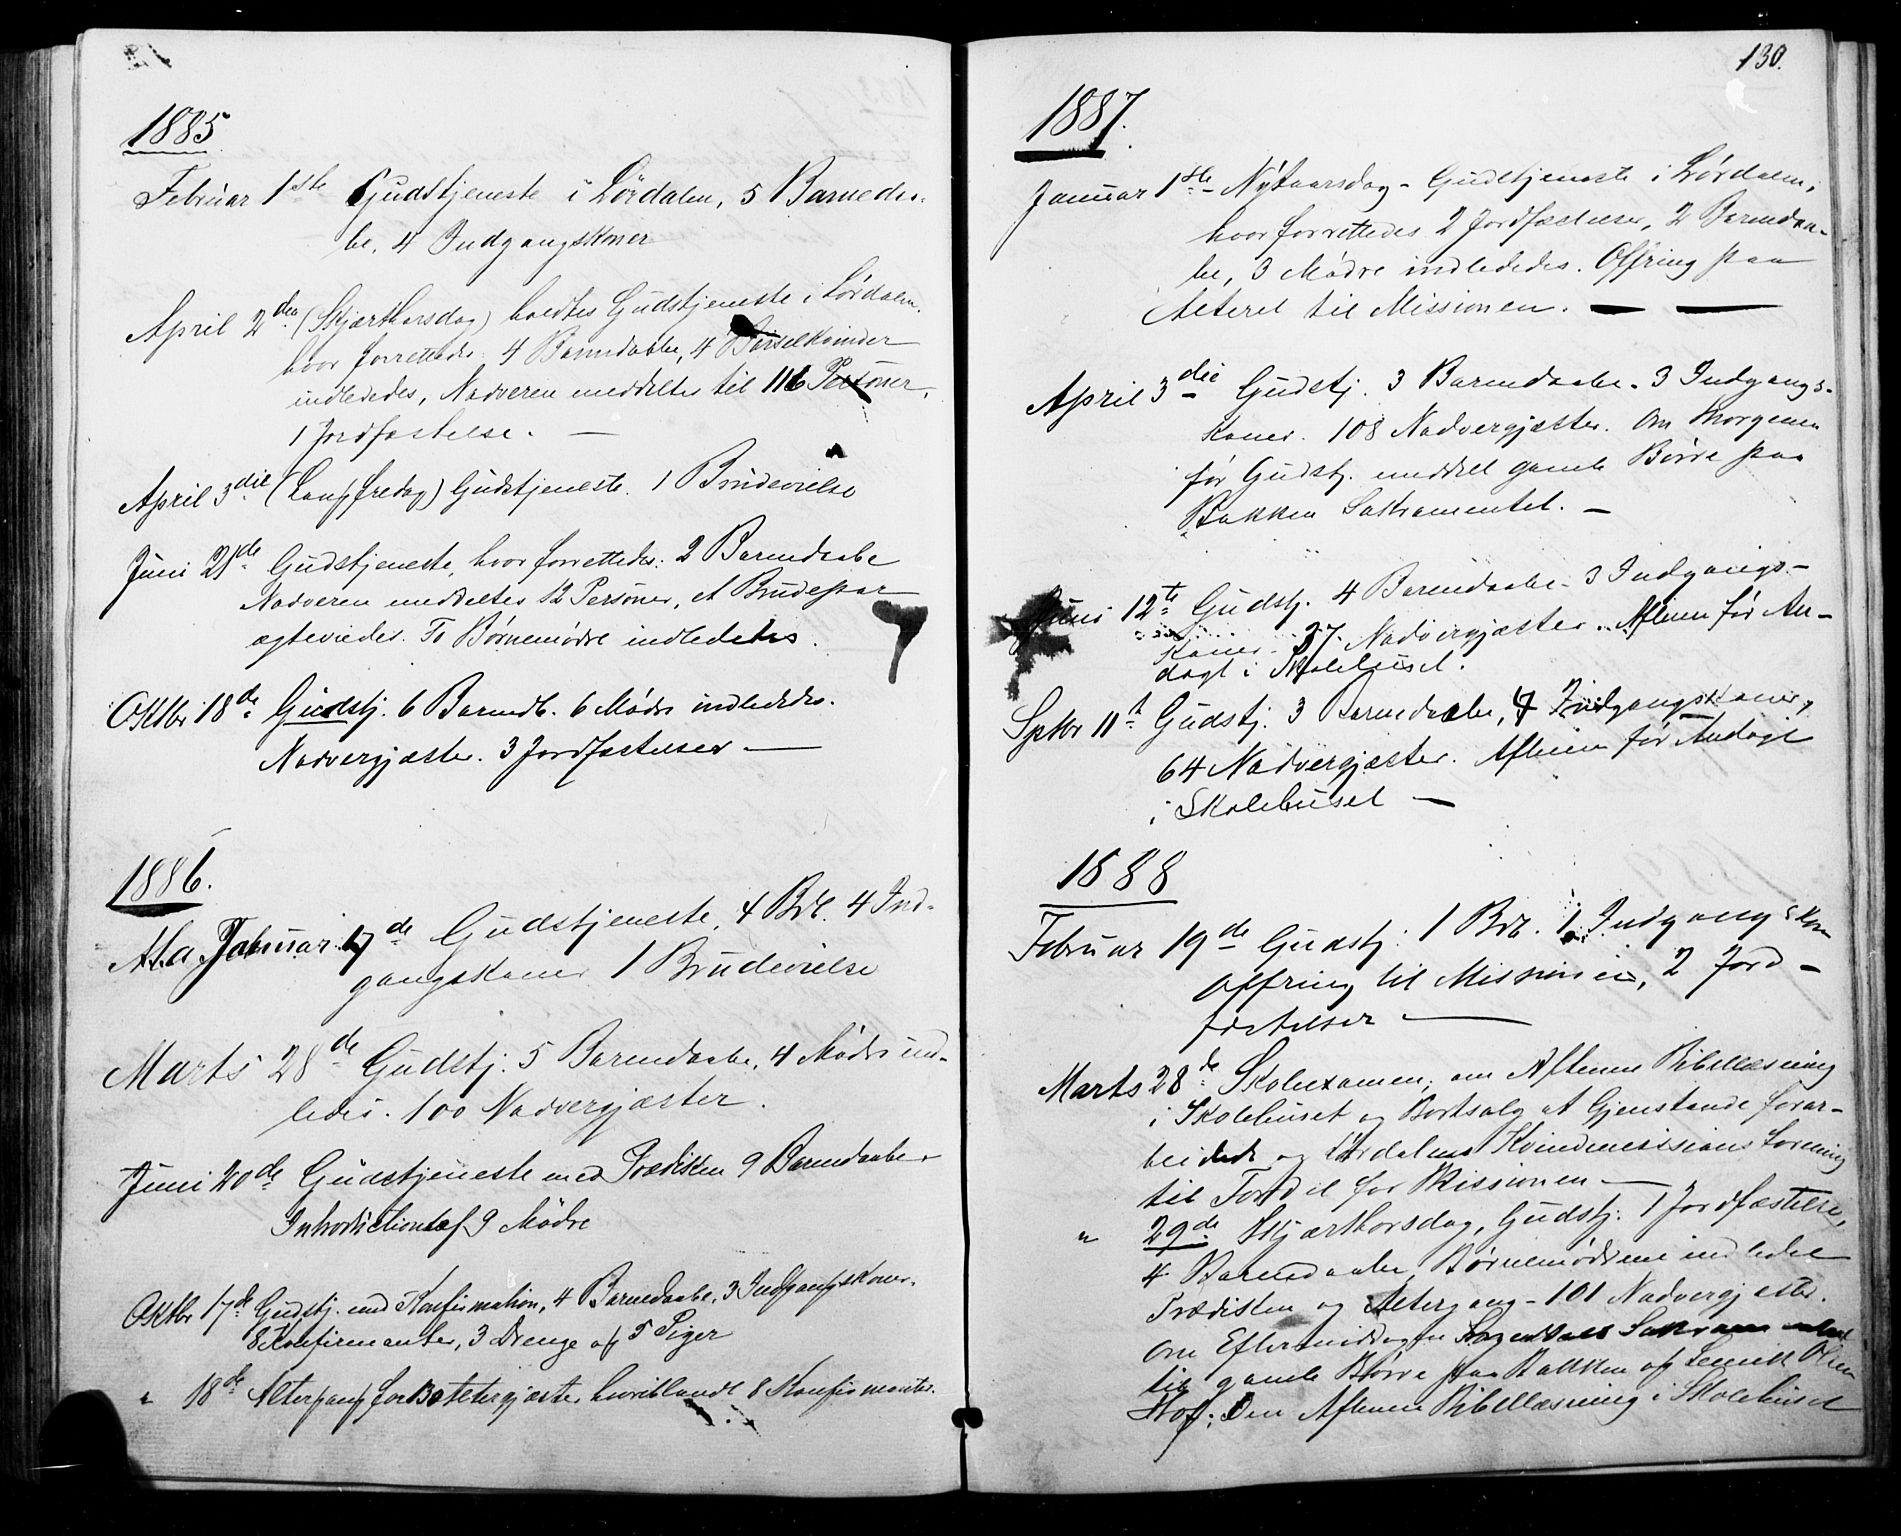 1885
Februar 1ste Gudstjeneste i Lördalen, 5 Barneda-
be, 4 Indgangskoner
April 2den (Skjærthorsdag) holdtes Gudstjeneste i Lördalen,
hvor forrettedes 4 Barndaabe, 4 Barselkvinder
indlededes, Nadveren meddeltes til 116 Personer,
1 Jordfæstelse. —
April 3die (Langfredag) Gudstjeneste. 1 Brudevielse
Juni 21de Gudstjeneste, hvor forrettedes: 2 Barndaabe
Nadveren meddeltes 12 Personer, et Brudepar
ægtevies. To Børnemødre indlededes.
Oktbr 18de Gudstj. 6 Barndb. 6 Mødre indlededes.
Nadvergjæster. 3 Jordfæstelser —
1886.
Januar 17de Gudstjeneste, 4 Brdb. 4 Ind-
gangskoner 1 Brudevielse
Marts 28de Gudstj. 5 Barndaabe, 4 Mødre ind-
ledes. 100 Nadvergjæster.
Juni 20de Gudstjeneste med Prædiken 9 Barndaabe.
Introduction af 9 Mødre
Oktbr 17de Gudstj. med Konfirmation, 4 Barnedaabe, 3 Indgangskoner.
8 Konfirmanter, 3 Drenge og 5 Piger
" 18de Altergang for Altergjæster, hvoriblandt 8 Konfirmanter.
130.
1887.
Januar 1ste - Nytaarsdag - Gudstjeneste i Lördalen,
hvor forrettedes 2 Jordfæstelser, 2 Barndaa-
be, 3 Mødre indlededes. Offring paa
Alteret til Missionen. — —
April 3die Gudstj. 3 Barndaabe - 3 Indgangs-
koner. 108 Nadvergjæster. Om Morgenen
før Gudstj. meddelt gamle Börre paa
Bakken Sakramentet. —
Juni 12te Gudstj. 4 Barndaabe - 3 Indgangs-
koner - 37 Nadvergjæster. Aftenen før An-
dagt i Skolehuset.
Sptbr 11te Gudstj. 3 Barndaabe, 4 Indgangskoner,
64 Nadvergjæster. Aftenen før Andagt
i Skolehuset —
1888
Februar 19de Gudstj. 1 Brdb. 1 Indgangskon
Offring til Missionen, 2 Jord-
fæstelser —
Marts 28de Skolexamen, om Aftenen Bibellæsning
i Skolehuset og Bortsalg af Gjenstande forar-
beidede og Lördalens Kvindemissions Forening
til Fordel for Missionen —
" 29de Skjærthorsdag, Gudstj. 1 Jordfæstelse,
4 Barndaabe, Børnemødrene indledet
Prædiken og Altergang - 101 Nadvergjæster.
Om Eftermiddagen Sakrament
til gamle Börre paa Bakken og Olsen
Hof. Om Aftenen Bibellæsning i Skolehuset